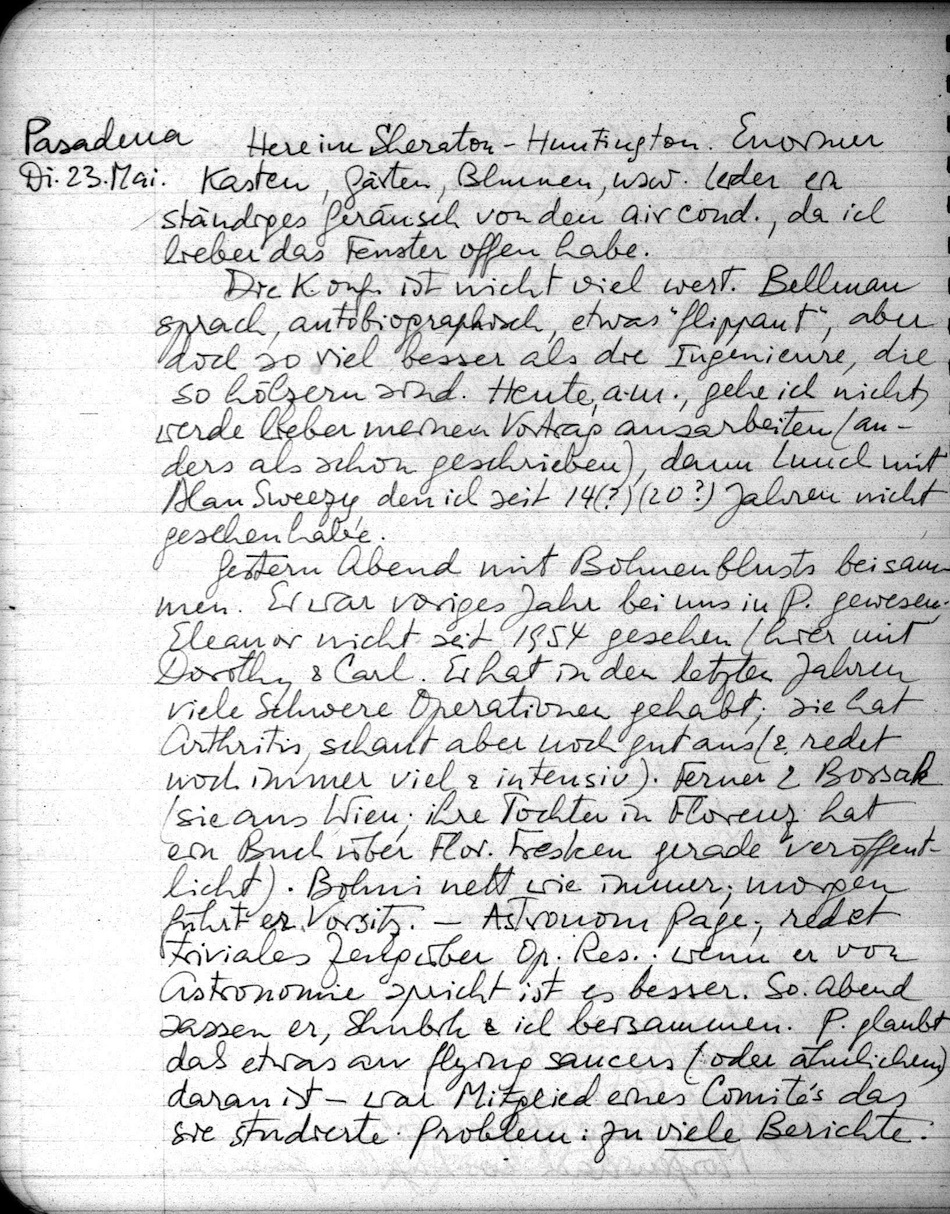 Pasadena Here im Sheraton-Huntington. Enormer
Di. 23. Mai. Kasten, Gärten, Blumen, usw. Leider ein
ständiges Geräusch von den air cond., da ich
lieber das Fenster offen habe.
Die Konf. ist nicht viel wert. Bellman
sprach, autobiographisch, etwas "flippant", aber
doch so viel besser als die Ingenieure, die
so hölzern sind. Heute, a.m., gehe ich nicht,
werde lieber meinen Vortrag ausarbeiten (an-
ders als schon geschrieben), dann Lunch mit
Alan Sweezy den ich seit 14(?) (20?) Jahren nicht
gesehen habe.
Gestern Abend mit Bohnenblusts beisam-
men. Er war voriges Jahr bei uns in P. gewesen.
Eleanor nicht seit 1954 gesehen (hier mit
Dorothy & Carl. Er hat in den letzten Jahren
viele schwere Operationen gehabt; sie hat
Arthritis, schaut aber noch gut aus (& redet
noch immer viel & intensiv). Ferner 2
(sie aus Wien; ihre Tochter in Florenz hat
ein Buch über Flor. Fresken gerade veröffent-
licht). Bohni nett wie immer; morgen
führt er Vorsitz. — Astronom Page; redet
triviales Zeug über Op. Res.. wenn er von
Astronomie spricht ist es besser. So. abend
sassen er, Shubik & ich beisammen. P. glaubt
daß etwas an flying saucers (oder ähnlichem)
daran ist – war Mitglied eines Comité's das
sie studierte. Problem: zu viele Berichte.